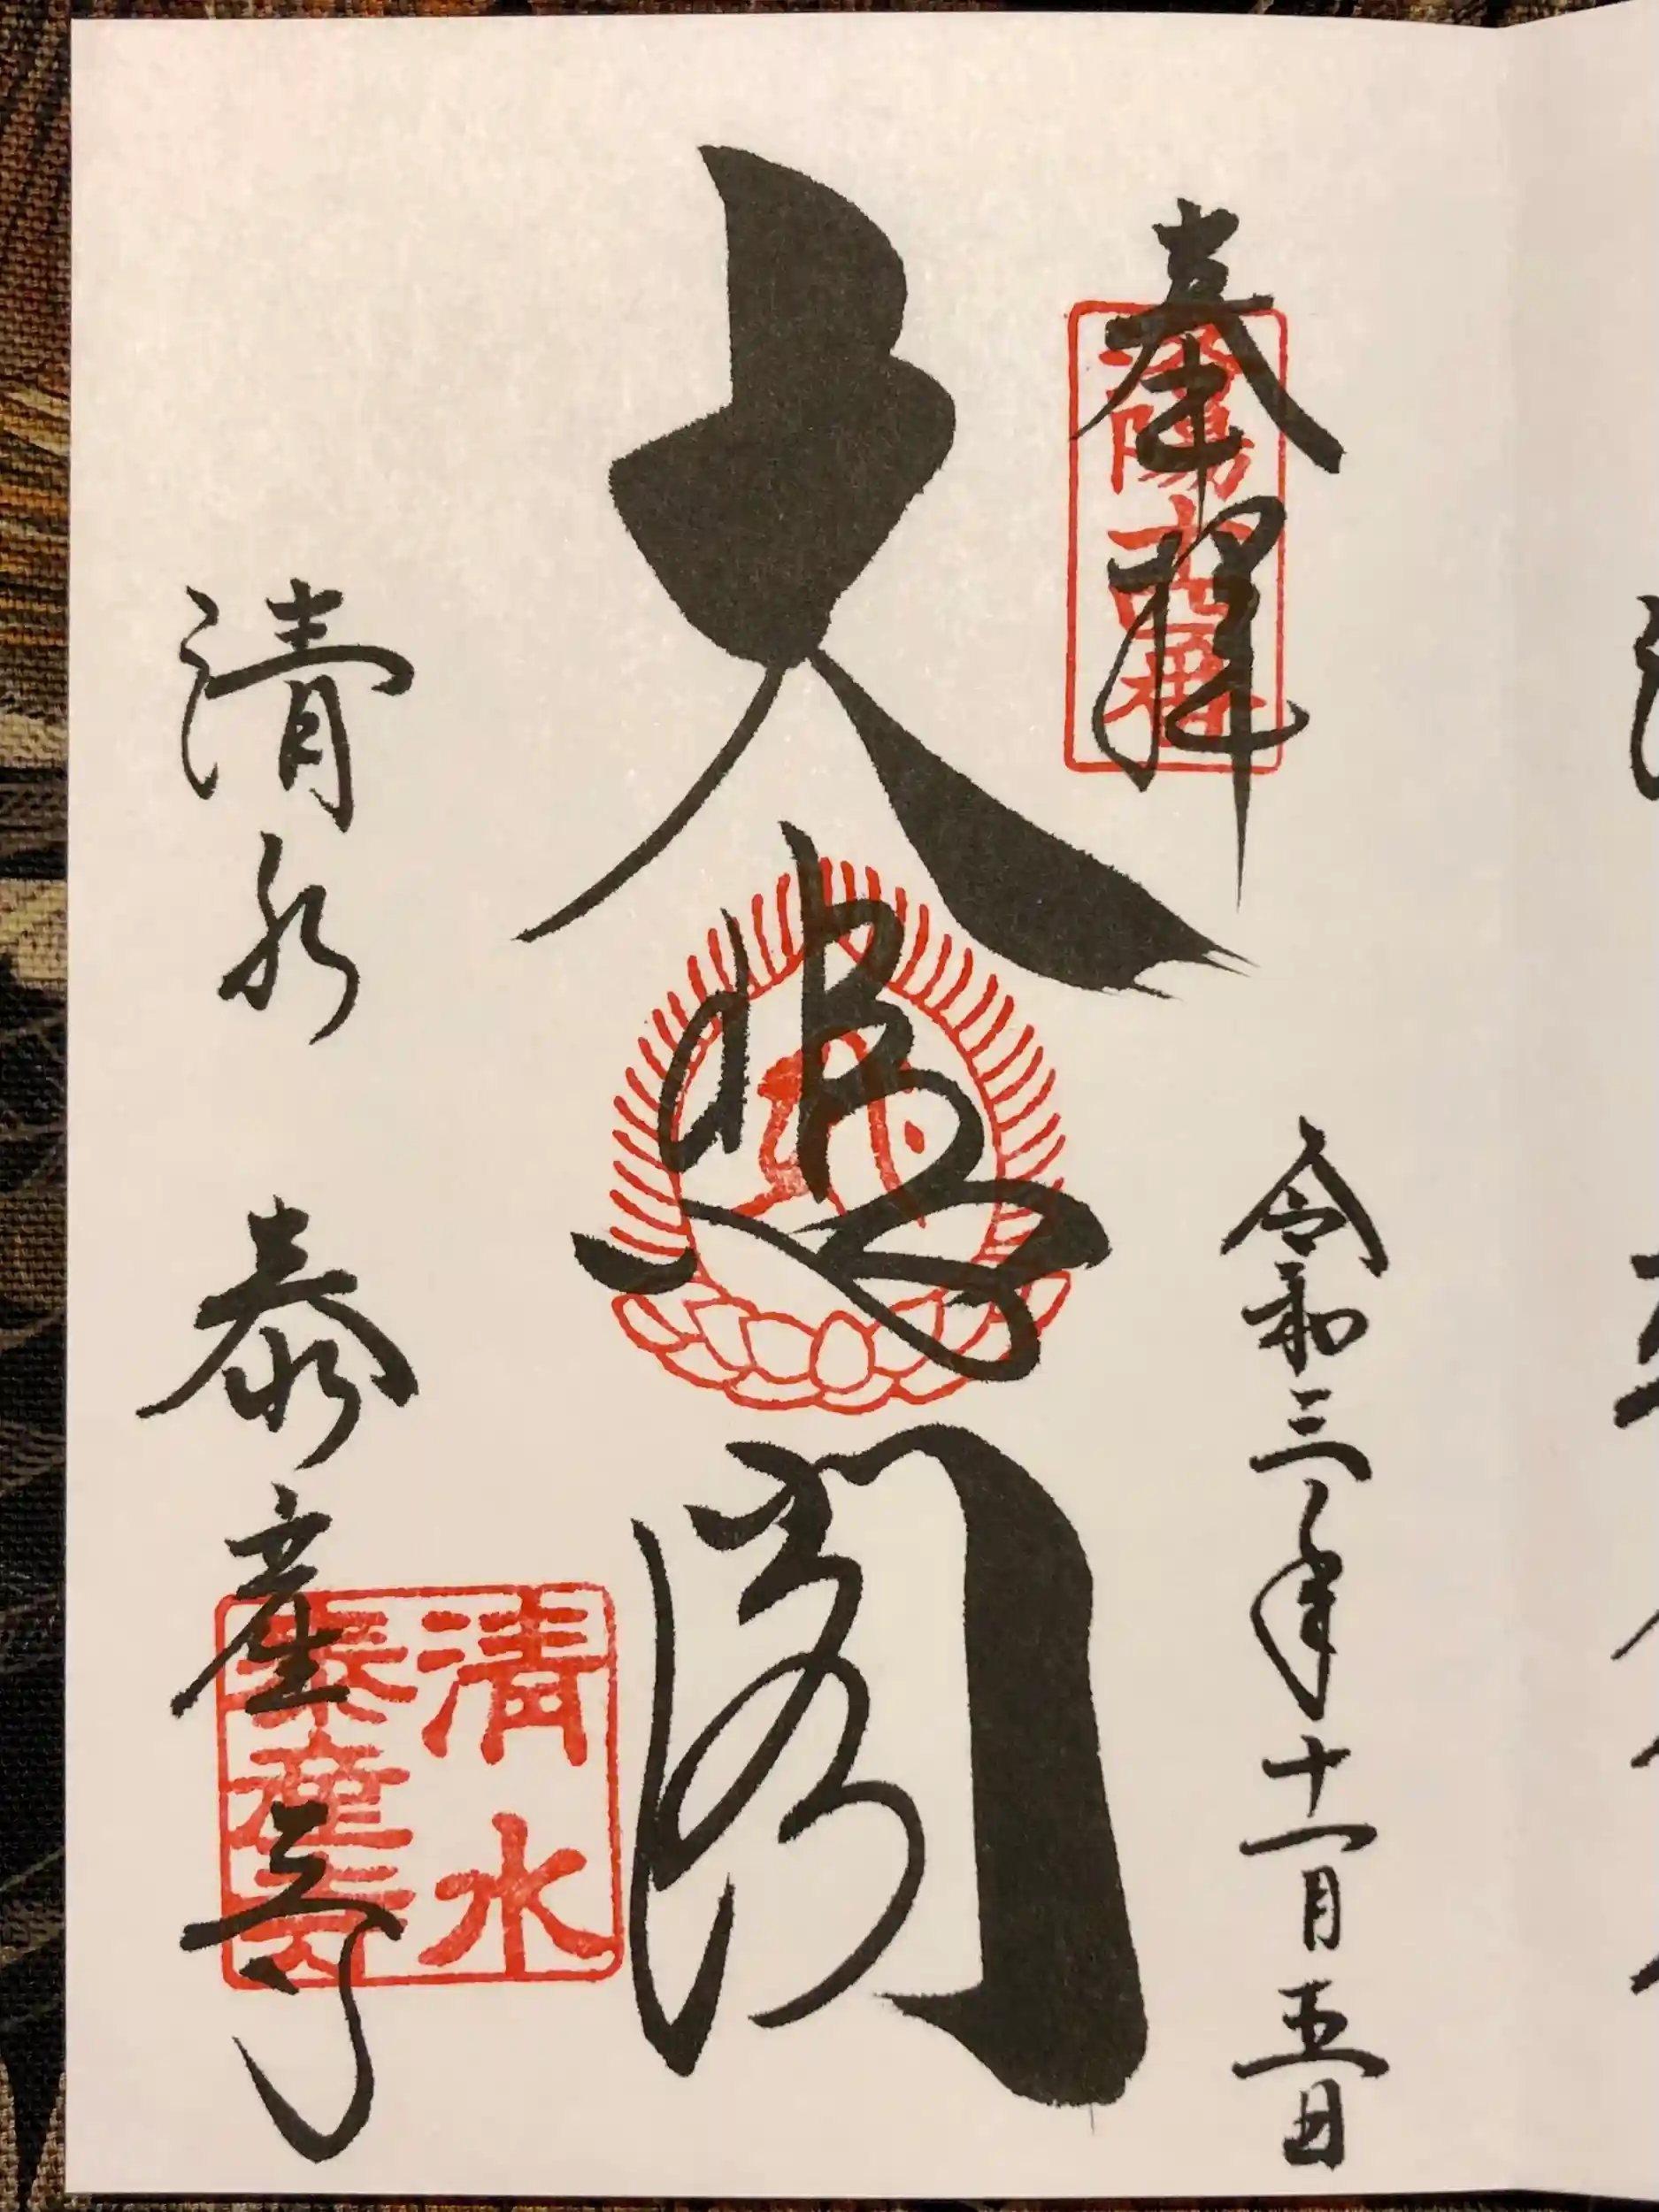 奉拝
洛陽十四番
令和三年十一月五日
大悲閣
清水
泰産寺
清水 泰産寺